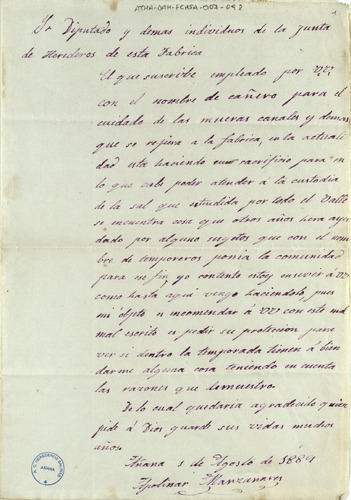 ATHA-DAH-FCHSA-007-098
Sr Diputado y demas individuos de la Junta
de Herederos de esta Fabrica
El que suscribe empleado por VV
con el nombre de cañero para el
cuidado de las mueras canales y demas
que se refiera a la fabrica, en la actuali
dad esta haciendo un sacrificio para en
lo que cabe poder atender á la custodia
de la sal que estendida por todo el Valle
se encuentra cosa que otros años hera ayu
dado por alguno sugetos que con el nom
bre de temporeros ponia la comunidad
para ese fin yo contento estoy en servir á VV
como hasta aqui vengo haciendolo, pues
mi objeto es recomendar á VV con este mi
mal escrito es pedir su protecion para
ver si dentro la temporada tienen á bien
darme alguna cosa teniendo en cuenta
las razones que demuestro.
De lo cual quedaria agradecido quien
pide á Dios guarde sus vidas muchos
años.
Añana 1 de Agosto de 1889
Apolinar Manzanares
AÑANA